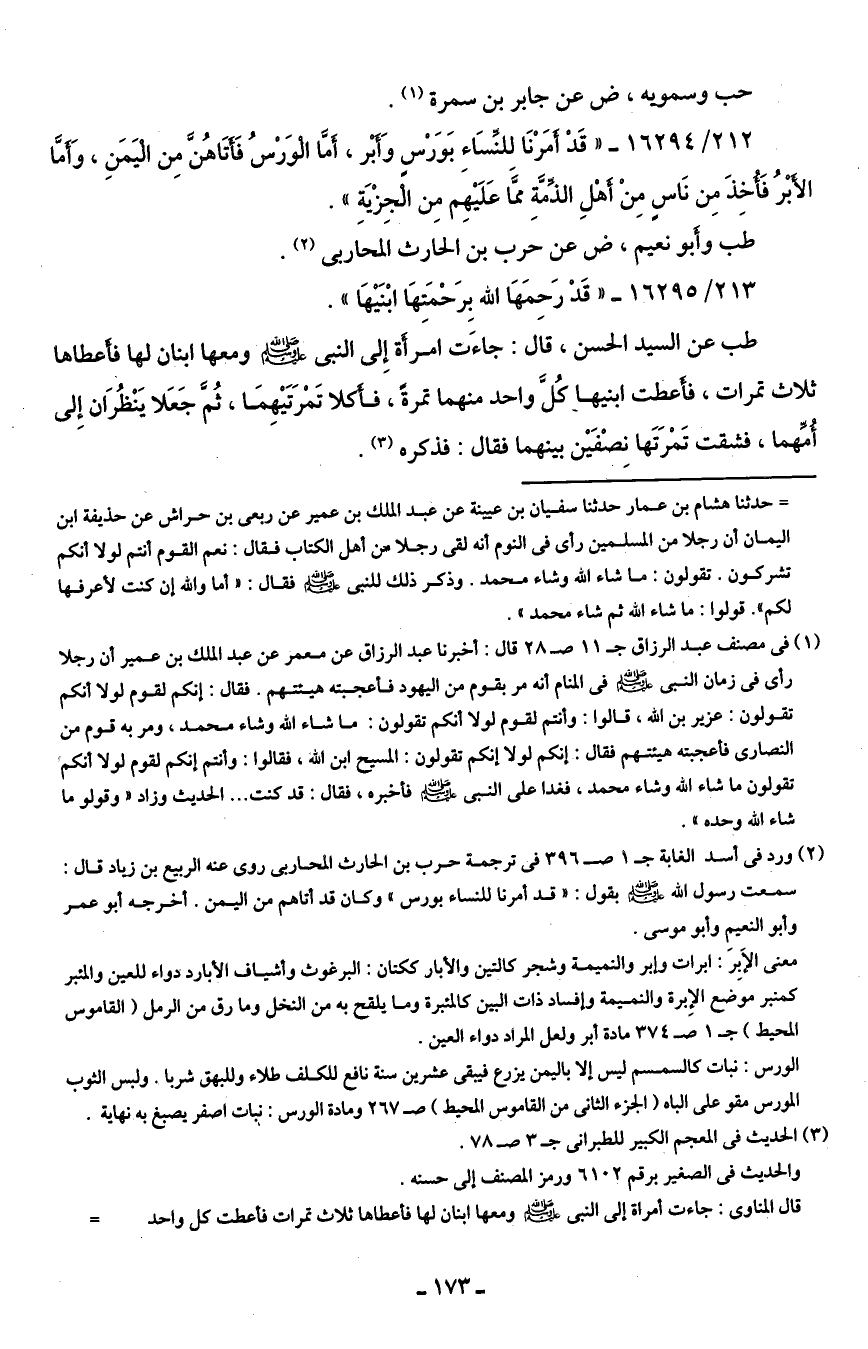 حب وسمويه ، ض عن جابر بن سمرة (١) .
٢١٢/ ١٦٢٩٤ ـ « قَدْ أَمَرْنَا لِلنِّسَاءِ بَوَرْسٍ وَأَبْر ، أَمَّا الْوَرْسُ فَأَتَاهُنَّ مِن الْيَمَنِ ، وَأَمَّا
الأَبْرُ فَأُخِذَ مِن نَاسٍ مِنْ أَهْلِ الذِّمَّةِ مِمَّا عَلَيْهِم مِن الْجِزْيَةِ » .
طب وأَبو نعيم ، ض عن حرب بن الحارث المحاربى (٢) .
٢١٣/ ١٦٢٩٥ ـ « قَدْ رَحِمَهَا الله بِرَحْمَتِهَا ابْنَيْهَا » .
طب عن السيد الحسن ، قال : جاءَت امرأَة إِلى النبى ﷺ ومعها ابنان لها فأَعطاها
ثلاث تمرات ، فأَعطت ابنيها كُلَّ واحد منهما تمرةً ، فأَكلا تَمْرَتَيْهِمَا ، ثُمَّ جَعَلا يَنْظُرَان إِلى
أُمِّهما ، فشقت تَمْرَتَها نِصْفَيْن بينهما فقال : فذكره (٣) .
= حدثنا هشام بن عمار حدثنا سفيان بن عيينة عن عبد الملك بن عمير عن ربعى بن حراش عن حذيفة ابن
اليمان أن رجلا من المسلمين رأى فى النوم أنه لقى رجلا من أهل الكتاب فقال : نعم القوم أنتم لولا أنكم
تشركون . تقولون : ما شاء الله وشاء محمد . وذكر ذلك للنبى ﷺ فقال : « أما والله إن كنت لأعرفها
لكم». قولوا : ما شاء الله ثم شاء محمد » .
(١) فى مصنف عبد الرزاق جـ ١١ صـ ٢٨ قال : أخبرنا عبد الرزاق عن معمر عن عبد الملك بن عمير أن رجلا
رأى فى زمان النبى ﷺ فى المنام أنه مر بقوم من اليهود فأعجبته هيئتهم . فقال : إنكم لقوم لولا أنكم
تقولون : عزير بن الله ، قالوا : وأنتم لقوم لولا أنكم تقولون : ما شاء الله وشاء محمد ، ومر به قوم من
النصارى فأعجبته هيئتهم فقال : إنكم لولا إنكم تقولون : المسيح ابن الله ، فقالوا : وأنتم إنكم لقوم لولا أنكم
تقولون ما شاء الله وشاء محمد ، فغدا على النبى ﷺ فأخبره ، فقال : قد كنت... الحديث وزاد « وقولو ما
شاء الله وحده » .
(٢) ورد فى أسد الغابة جـ ١ صـ ٣٩٦ فى ترجمة حرب بن الحارث المحاربى روى عنه الربيع بن زياد قال :
سمعت رسول الله ﷺ يقول : « قد أمرنا للنساء بورس » وكان قد أتاهم من اليمن . أخرجه أبو عمر
وأبو النعيم وأبو موسى .
معنى الإَبرَ : ابرات وإبر والنميمة وشجر كالتين والأبار ككتان : البرغوث وأشياف الأبارد دواء للعين والمئبر
كمنبر موضع الإبرة والنميمة وإفساد ذات البين كالمئبرة وما يلقح به من النخل وما رق من الرمل ( القاموس
المحيط ) جـ ١ صـ ٣٧٤ مادة أبر ولعل المراد دواء العين .
الورس : نبات كالسمسم ليس إلا باليمن يزرع فيبقى عشرين سنة نافع للكلف طلاء وللبهق شربا . ولبس الثوب
المورس مقو على الباه ( الجزء الثانى من القاموس المحيط ) صـ ٢٦٧ ومادة الورس : نبات اصفر يصبغ به نهاية .
(٣) الحديث فى المعجم الكبير للطبرانى جـ ٣ صـ ٧٨ .
والحديث فى الصغير برقم ٦١٠٢ ورمز المصنف إلى حسنه .
قال المناوى : جاءت أمراة إلى النبى ﷺ ومعها ابنان لها فأعطاها ثلاث تمرات فأعطت كل واحد =
ـ ١٧٣ ـ